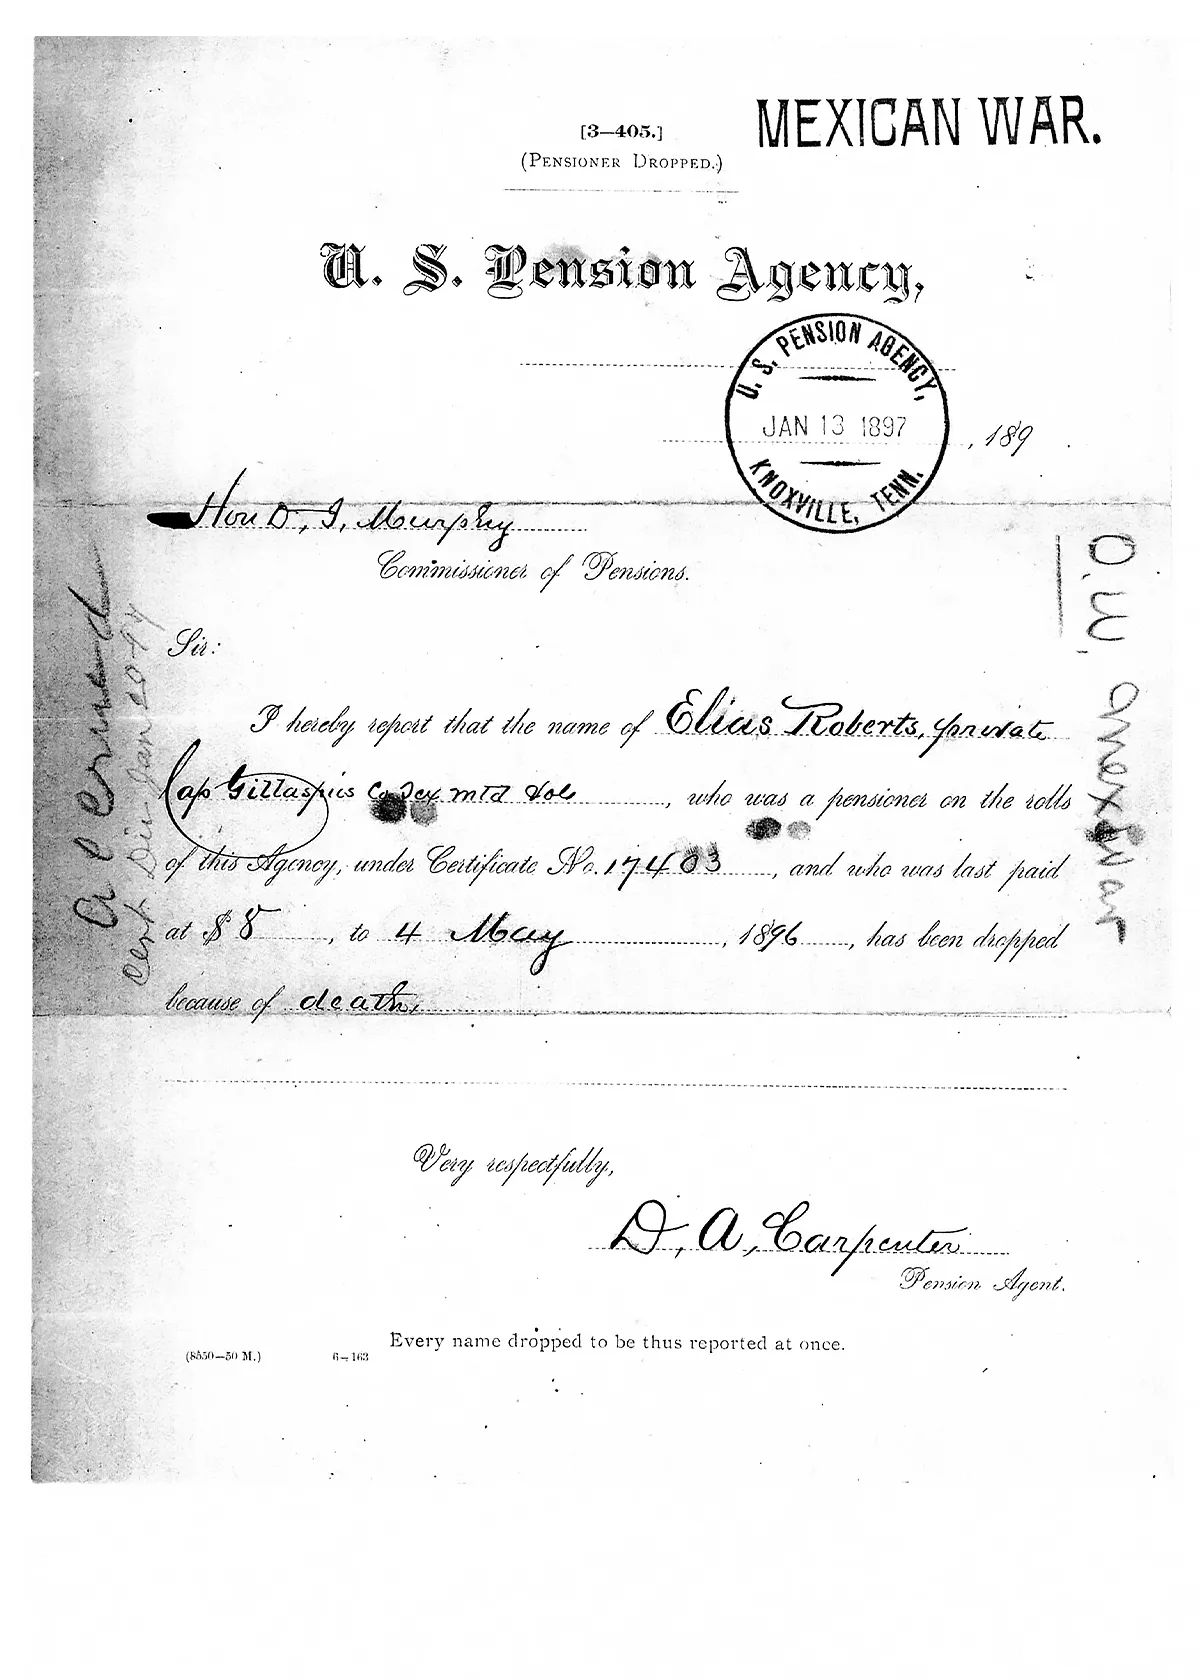 MEXICAN WAR.
[3—405.]
(PENSIONER DROPPED.)
U. S. Pension Agency,
U. S. PENSION AGENCY,
JAN 13 1897
KNOXVILLE, TENN.
, 189 .
Hon D, I, Murphy
Commissioner of Pensions.
Sir:
I hereby report that the name of Elias Roberts, private
Cap Gillaspies Co Tex mtd Vols , who was a pensioner on the rolls
of this Agency, under Certificate No. 17403 , and who was last paid
at $ 8 , to 4 May , 1896 , has been dropped
because of death,
Very respectfully,
D, A, Carpenter
Pension Agent.
Every name dropped to be thus reported at once.
(8550—50 M.) 6—163
O.W.
Mex War
Cert Div Jan 20 97